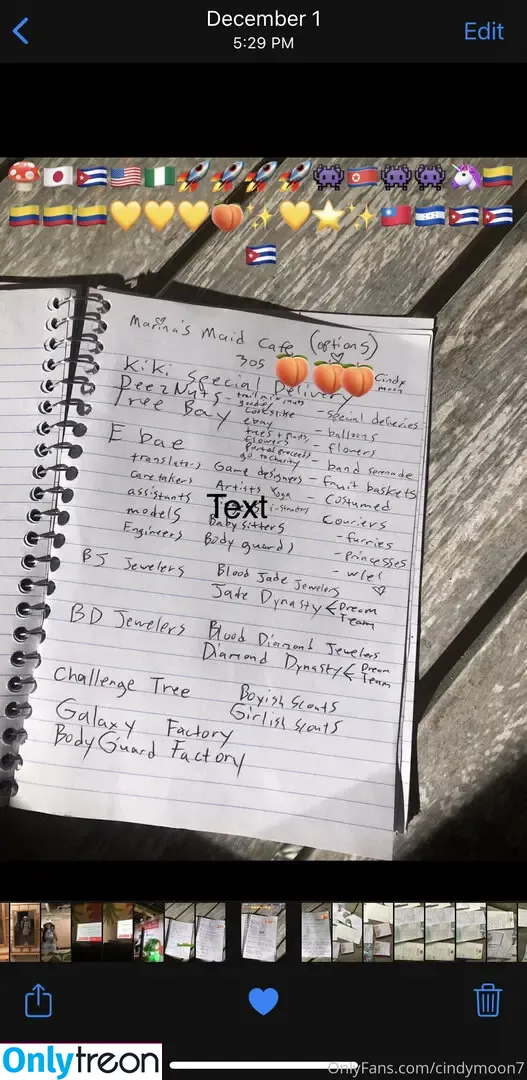 December 1
5:29 PM
Edit
Marina's Maid Cafe (options)
305
Cindy
moon
Kiki Special Delivery
DeezNuts - trail mix nuts
goodies
- special deliveries
Tree Bay
ebay
- balloons
trees + nuts
flowers
- flowers
E bae
partial proceeds
go to charity
- band serenade
translators
Game designers
- fruit baskets
caretakers
Artists Yoga
- Costumed
assistants
Text
Couriers
models
Baby sitters
- furries
Engineers
Body guards
- princesses
BJ Jewelers
Blood Jade Jewelers
Jade Dynasty
Dream
Team
BD Jewelers
Blood Diamond Jewelers
Diamond Dynasty
Dream
Team
Challenge Tree
Boyish Scouts
Girlish Scouts
Galaxy Factory
BodyGuard Factory
Onlytreon
OnlyFans.com/cindymoon7